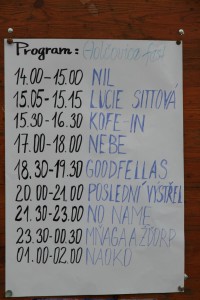 Program:
14.00-15.00 NIL
15.05-15.15 LUCIE SITTOVÁ
15.30-16.30 KOFE-IN
17.00-18.00 NEBE
18.30-19.30 GOODFELLAS
20.00-21.00 POSLEDNÍ VÝSTŘEL
21.30-23.00 NO NAME
23.30-00.30 MŇÁGA A ŽĎORP
01.00-02.00 NAOKO